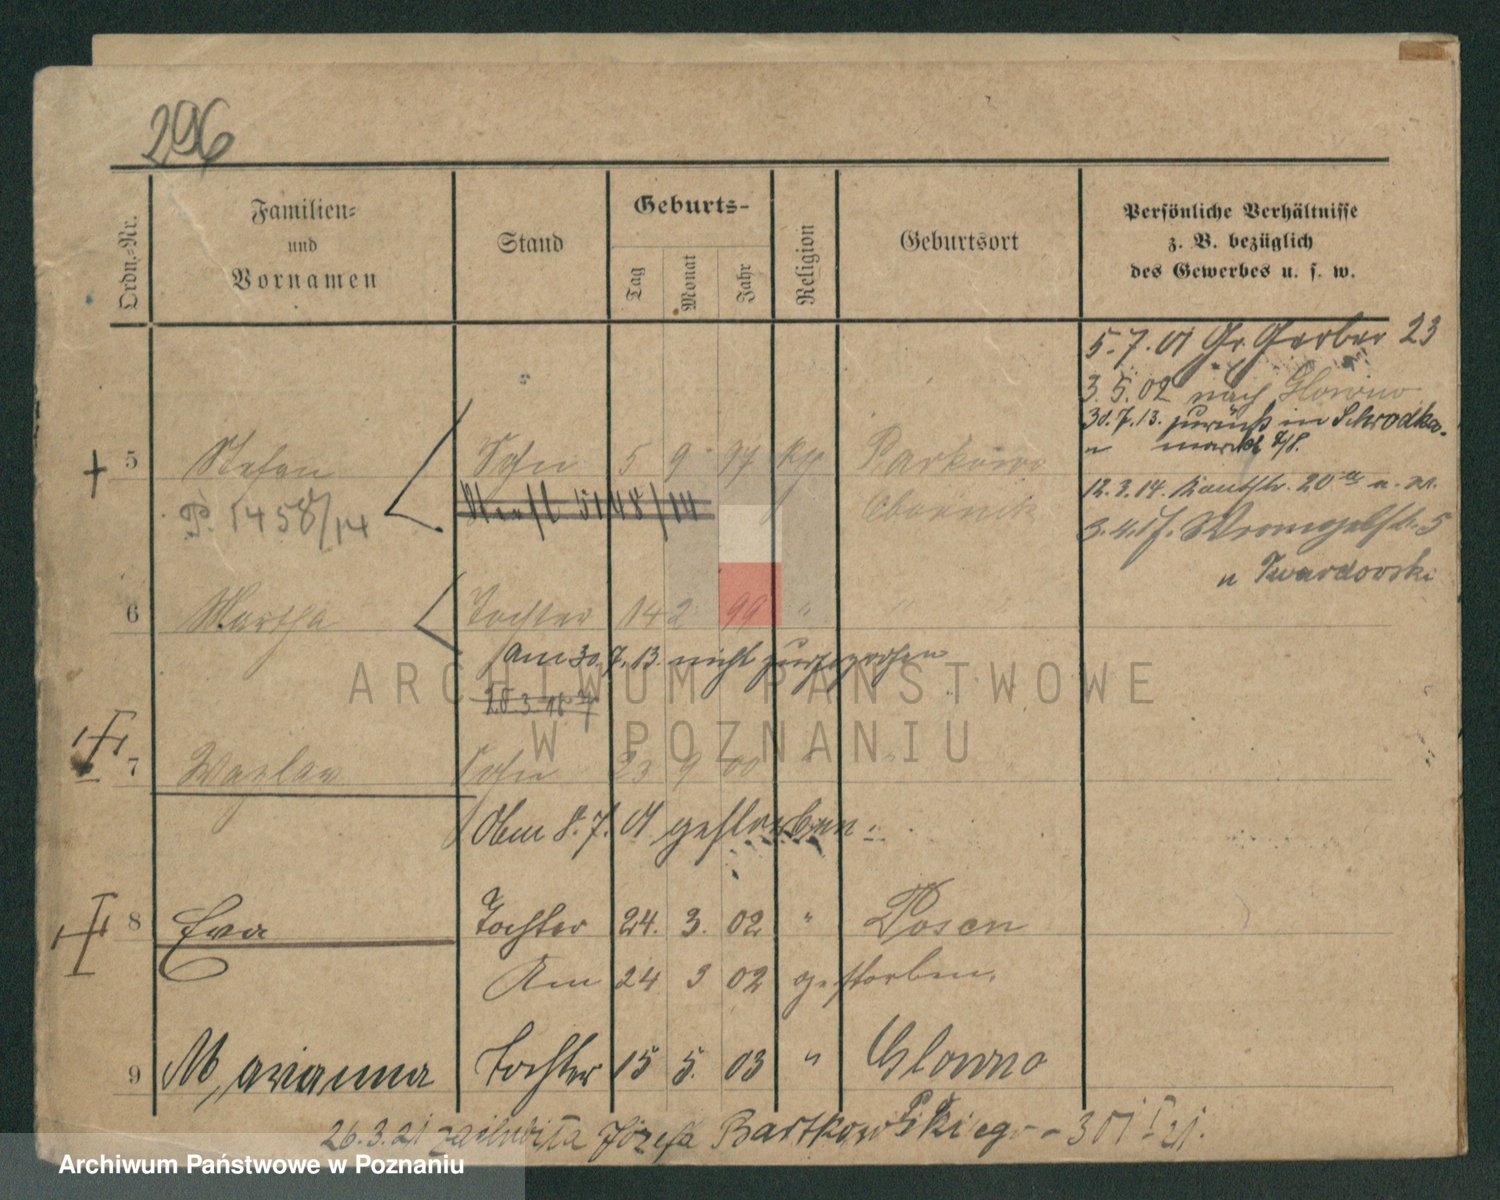 296
Ordn.-Nr.
Familien-
und
Vornamen
Stand
Geburts-
Tag
Monat
Jahr
Religion
Geburtsort
Persönliche Verhältnisse
z. B. bezüglich
des Gewerbes u. s. w.
5.7.01 Gr. Gerber 23
3.5.02 nach Glowno
30.7.13. zurück in Schrodka-
markt 7/8.
5 Stefan Sohn 5 9 97 Parkowo
12.3.14. 20
P. 1458/14 5148/14 Obornik
Wrangelstr. 5
u Twardowski
6 Martha Tochter 14 2 99 "
Am 30.7.13. nicht zugezogen
25.3.16
7 Wazlaw Sohn 23 9 00 "
Am 8.7.01 gestorben.
8 Eva Tochter 24. 3. 02 " Posen
Am 24 3 02 gestorben.
9 Marianna Tochter 15 5. 03 " Glowno
26.3.21 zaślubiła Józefa Bartkowskiego
ARCHIWUM PAŃSTWOWE
W POZNANIU
Archiwum Państwowe w Poznaniu